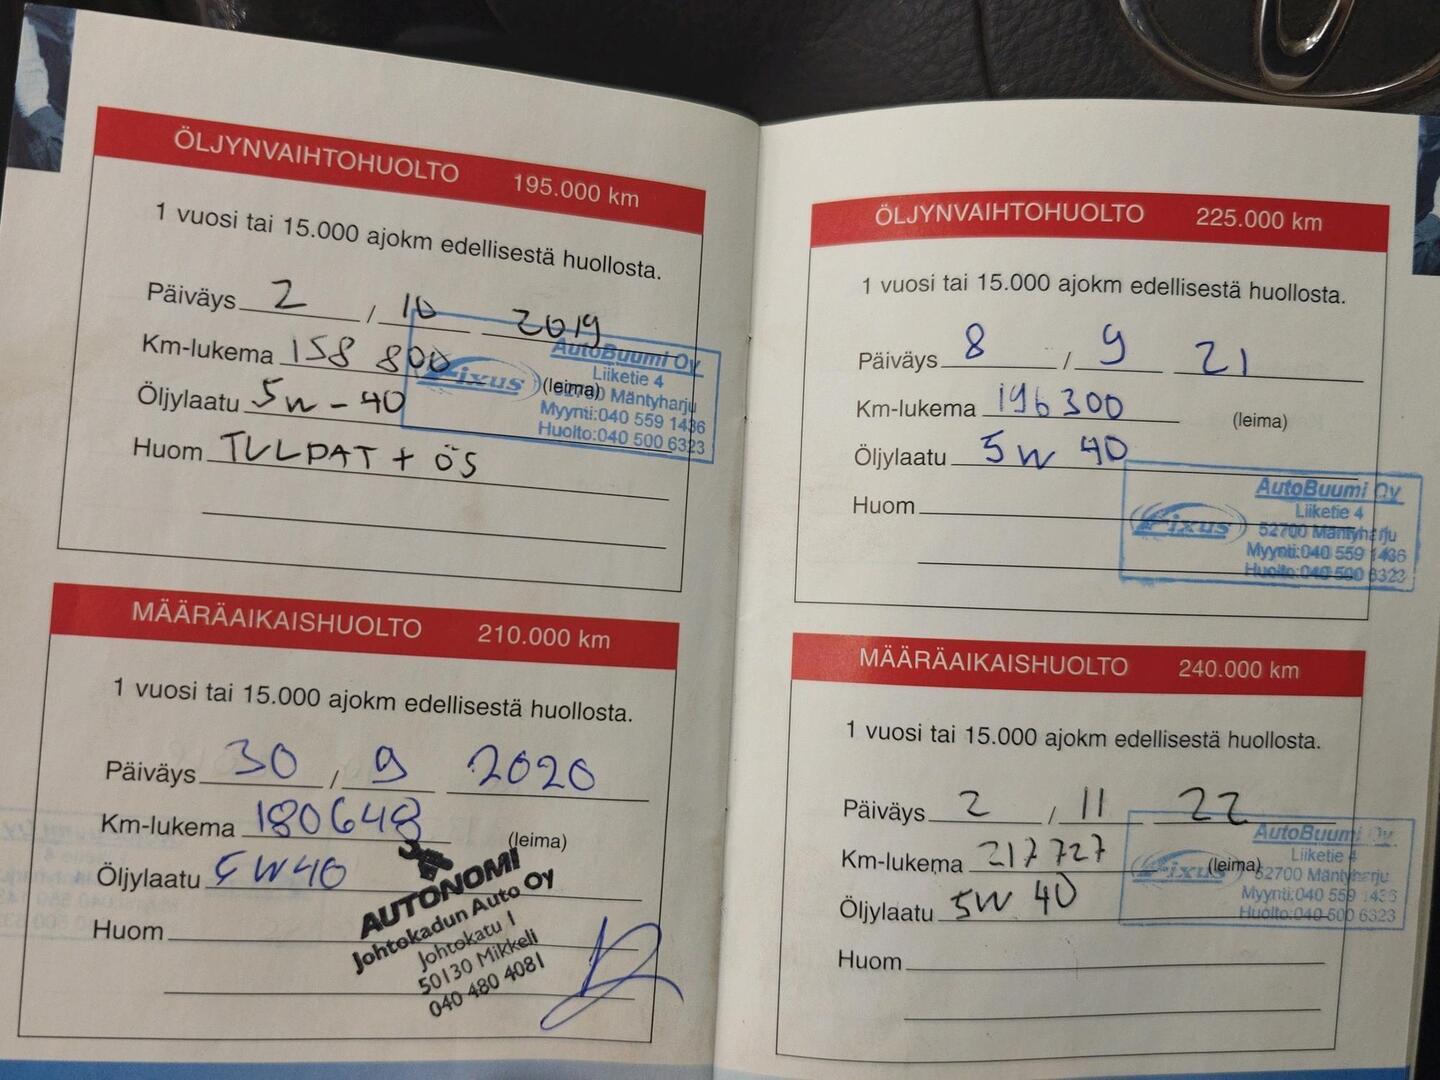 ÖLJYNVAIHTOHUOLTO 195.000 km
1 vuosi tai 15.000 ajokm edellisestä huollosta.
Päiväys 2 / 10 2019
Km-lukema 158 800 (leima)
Öljylaatu 5w-40
Huom TULPAT + ÖS
AutoBuumi Oy
Liiketie 4
Fixus 52700 Mäntyharju
Myynti:040 559 1436
Huolto:040 500 6323
MÄÄRÄAIKAISHUOLTO 210.000 km
1 vuosi tai 15.000 ajokm edellisestä huollosta.
Päiväys 30 / 9 2020
Km-lukema 180648 (leima)
Öljylaatu 5W40
Huom
AUTONOMI
Johtokadun Auto Oy
Johtokatu 1
50130 Mikkeli
040 480 4081
ÖLJYNVAIHTOHUOLTO 225.000 km
1 vuosi tai 15.000 ajokm edellisestä huollosta.
Päiväys 8 / 9 21
Km-lukema 196300 (leima)
Öljylaatu 5w 40
Huom
AutoBuumi Oy
Liiketie 4
Fixus 52700 Mäntyharju
Myynti:040 559 1436
Huolto:040 500 6323
MÄÄRÄAIKAISHUOLTO 240.000 km
1 vuosi tai 15.000 ajokm edellisestä huollosta.
Päiväys 2 / 11 22
Km-lukema 217727 (leima)
Öljylaatu 5W 40
Huom
AutoBuumi Oy
Liiketie 4
Fixus 52700 Mäntyharju
Myynti:040 559 1436
Huolto:040 500 6323